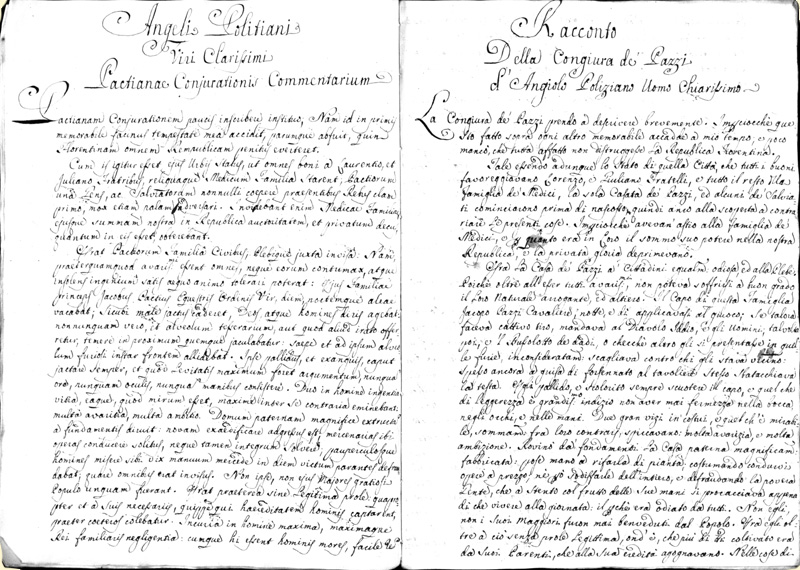 Angeli Politiani
Viri Clarissimi
Pactianae Conjurationis Commentarium
Pactianam Conjurationem paucis describere instituo; Nam id in primis
memorabile facinus tempestate mea accidit, parumque abfuit, quin
Florentinam omnem Rempublicam penitus everteret.
Cum is igitur esset ejus Urbis Status, ut omnes boni a Laurentio, et
Juliano Fratribus, reliquaque Medicum Familia starent; Pactiorum
una Gens, ac Salviatorum nonnulli coepere praesentibus Rebus clam
primo, mox etiam palam adversari. Invidebant enim Medicae Familiae,
ejusque summam nostra in Republica auctoritatem, et privatum decus,
quantum in eis esset, obterebant.
Erat Pactiorum Familia Civibus, Plebique juxta invisa: Nam,
praeterquamquod avari essent omnes, neque eorum contumax, atque
insolens ingenium satis aequo animo tolerari poterat: Ejus Familiae
princeps Jacobus Pactius Equestris Ordinis Vir, diem, noctemque aleae
vacabat; sicubi male jactus caderet, Deos atque homines diris agebat:
nonnunquam vero, et alveolum tesserarum, aut quod aliud irato offer
retur, temere in proximum quemque jaculabatur: Saepe et ad ipsum alveo
lum furiosi instar frontem allidebat. Ipse pallidus, et exanguis, caput
jactare semper, et quod Levitatis maximum foret argumentum, nunquam
ore, nunquam oculis, nunquam manibus consistere. Duo in homine ingentia
vitia, eaque, quod mirum esset, maxime inter se contraria eminebant:
multa avaritia, multa ambitio. Domum paternam magnifice extructam
a fundamentis diruit: novam exaedificare adgressus est, mercenarias ibi
operas conducere solitus, neque tamen integrum solvere; pauperculosque
homines misere sibi vix manuum mercede in diem victum parantes defrau
dabat; quare omnibus erat invisus. Non ipse, non ejus Majores gratiosi
Populo unquam fuerant. Erat praeterea sine Legitima prole, quaprop
pter et a Suis necessariis, quippe qui haereditatem hominis captarent,
praeter coeteros colebatur. Incuria in homine maxima, maximaque
Rei familiaris negligentia: cumque hi essent hominis mores, facile
Racconto
Della Congiura de' Pazzi
d' Angiolo Poliziano Uomo Chiarissimo.
La Congiura de' Pazzi prendo a descrivere brevemente. Imperocchè que
sto fatto sovra ogni altro memorabile accadde a mio tempo, e poco
mancò, che tutta affatto non distruggesse la Republica Fiorentina.
Tale essendo adunque lo Stato di quella Città, che tutti i buoni
favoreggiavano Lorenzo, e Giuliano Fratelli, e tutto il resto della
Famiglia de' Medici, la sola Casata de' Pazzi, ed alcuni de' Salvia
ti cominciarono prima di nascosto, quindi anco alla scoperta a contra
riare le presenti cose. Imperocchè avevan astio alla famiglia de'
Medici, e quanto era in loro il sommo suo potere nella nostra
Republica, e la privata gloria deprimevano.
Era la Casa de' Pazzi a' Cittadini egualm. odiosa, ed alla Plebe.
Poichè oltre all'esser tutti avari, non poteva soffrirsi a buon grado
il loro Naturale arrogante, ed altiero. Il Capo di questa Famiglia
Jacopo Pazzi Cavaliere, notte, e dì applicavasi al giuoco; Se talvolta
faceva cattivo tiro, mandava al Diavolo Iddio, e gli Uomini, talvolta
poi, e l bussolotto de' dadi, o checchè altro gli si presentasse in quel
le furie, inconsideratam. scagliava contro chi gli stava vicino:
Spesso ancora a guisa di forsennato al tavoliere stesso s'ammaccava
la testa. Egli pallido, e scolorito sempre scuotere il capo, e quel che
di leggerezza è grandiss. indizio non aver mai fermezza nella bocca,
negli occhi, e nelle mani. Due gran vizj in costui, e quel ch'è mirabi
le, sommam. fra loro contrarj, spiccavano: molta avarizia, e molta
ambizione. Rovinò da' fondamenti la Casa paterna magnificam.
fabbricata: pose mano a rifarla di pianta, costumando condurvi
opere a prezzo, nè però sodisfarle dell'intiero, e defraudando la povera
Gente, che a stento col frutto delle Sue mani si procacciava appena
di che vivere alla giornata: il perchè era odiato da tutti. Non egli,
non i Suoi Maggiori furon mai benveduti dal Popolo. Era egli ol
tre a ciò senza prole Legittima, ond' è, che più di tutti coltivato era
da' Suoi Parenti, che alla Sua eredità agognavano. Nelle cose di-